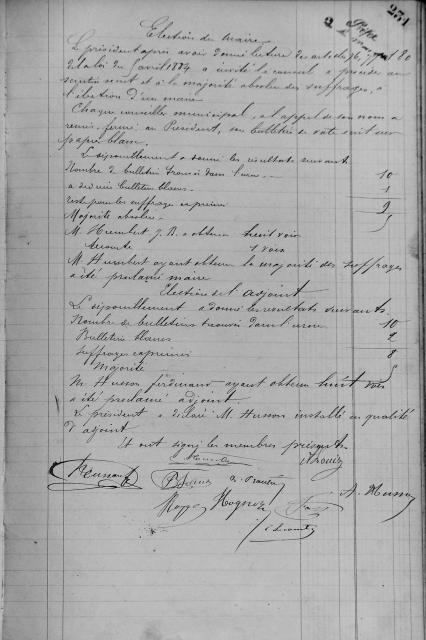 231
2
Election du maire
Le président après avoir donné lecture des articles 76, 77 et 80
de la loi du 5 avril 1884 a invité le conseil à procéder au
scrutin secret et à la majorité absolue des suffrages, à
l'élection d'un maire
Chaque conseiller municipal, à l'appel de son nom a
remis, fermé au Président, son bulletin de vote écrit sur
papier blanc.
Le dépouillement a donné les résultats suivants
Nombre de bulletins trouvés dans l'urne 10
a déduire bulletin blanc 1
reste pour les suffrages exprimés 9
Majorité absolue 5
M. Humbert J. B. a obtenu huit voix
1 voix
M. Humbert ayant obtenu la majorité des suffrages
a été proclamé maire
Election de l'adjoint
Le dépouillement a donné les résultats suivants
Nombre de bulletins trouvés dans l'urne 10
Bulletins blancs 2
suffrages exprimés 8
Majorité 5
M. Husson ferdinand ayant obtenu huit voix
a été proclamé adjoint
Le président a déclaré M. Husson installé en qualité
d'adjoint
Et ont signé les membres présents
A. Husson